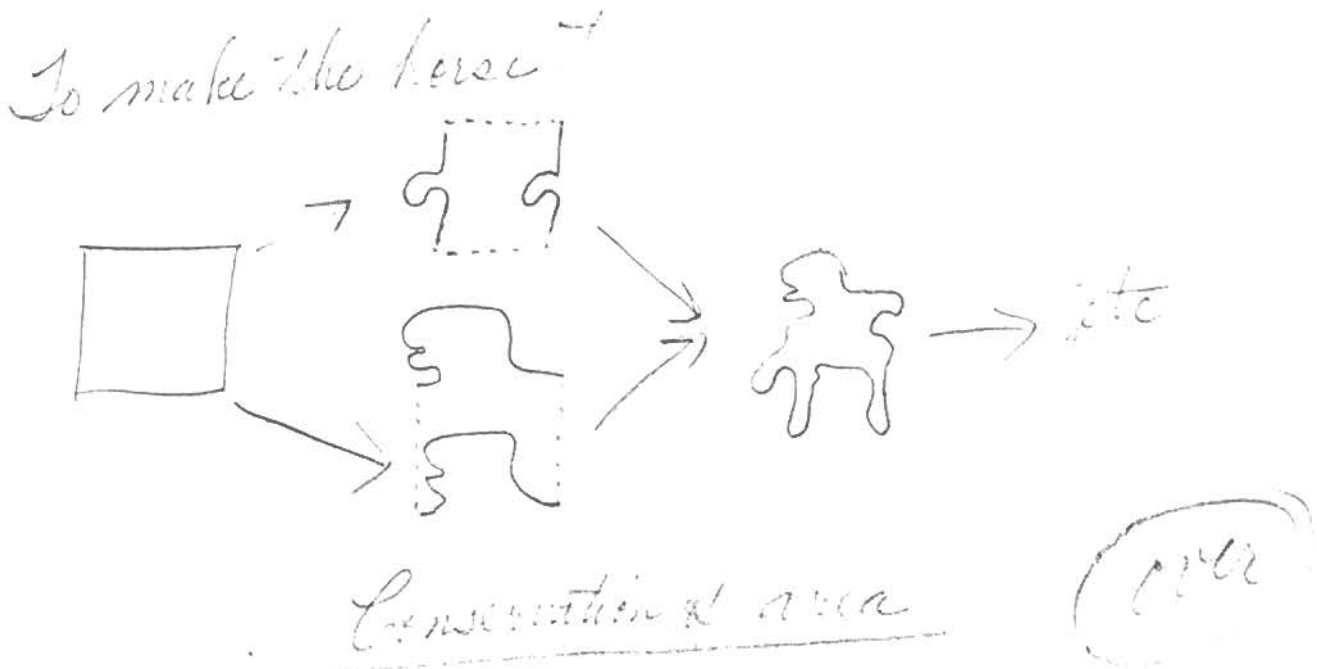 To make the horse
etc
Conservation of area
over